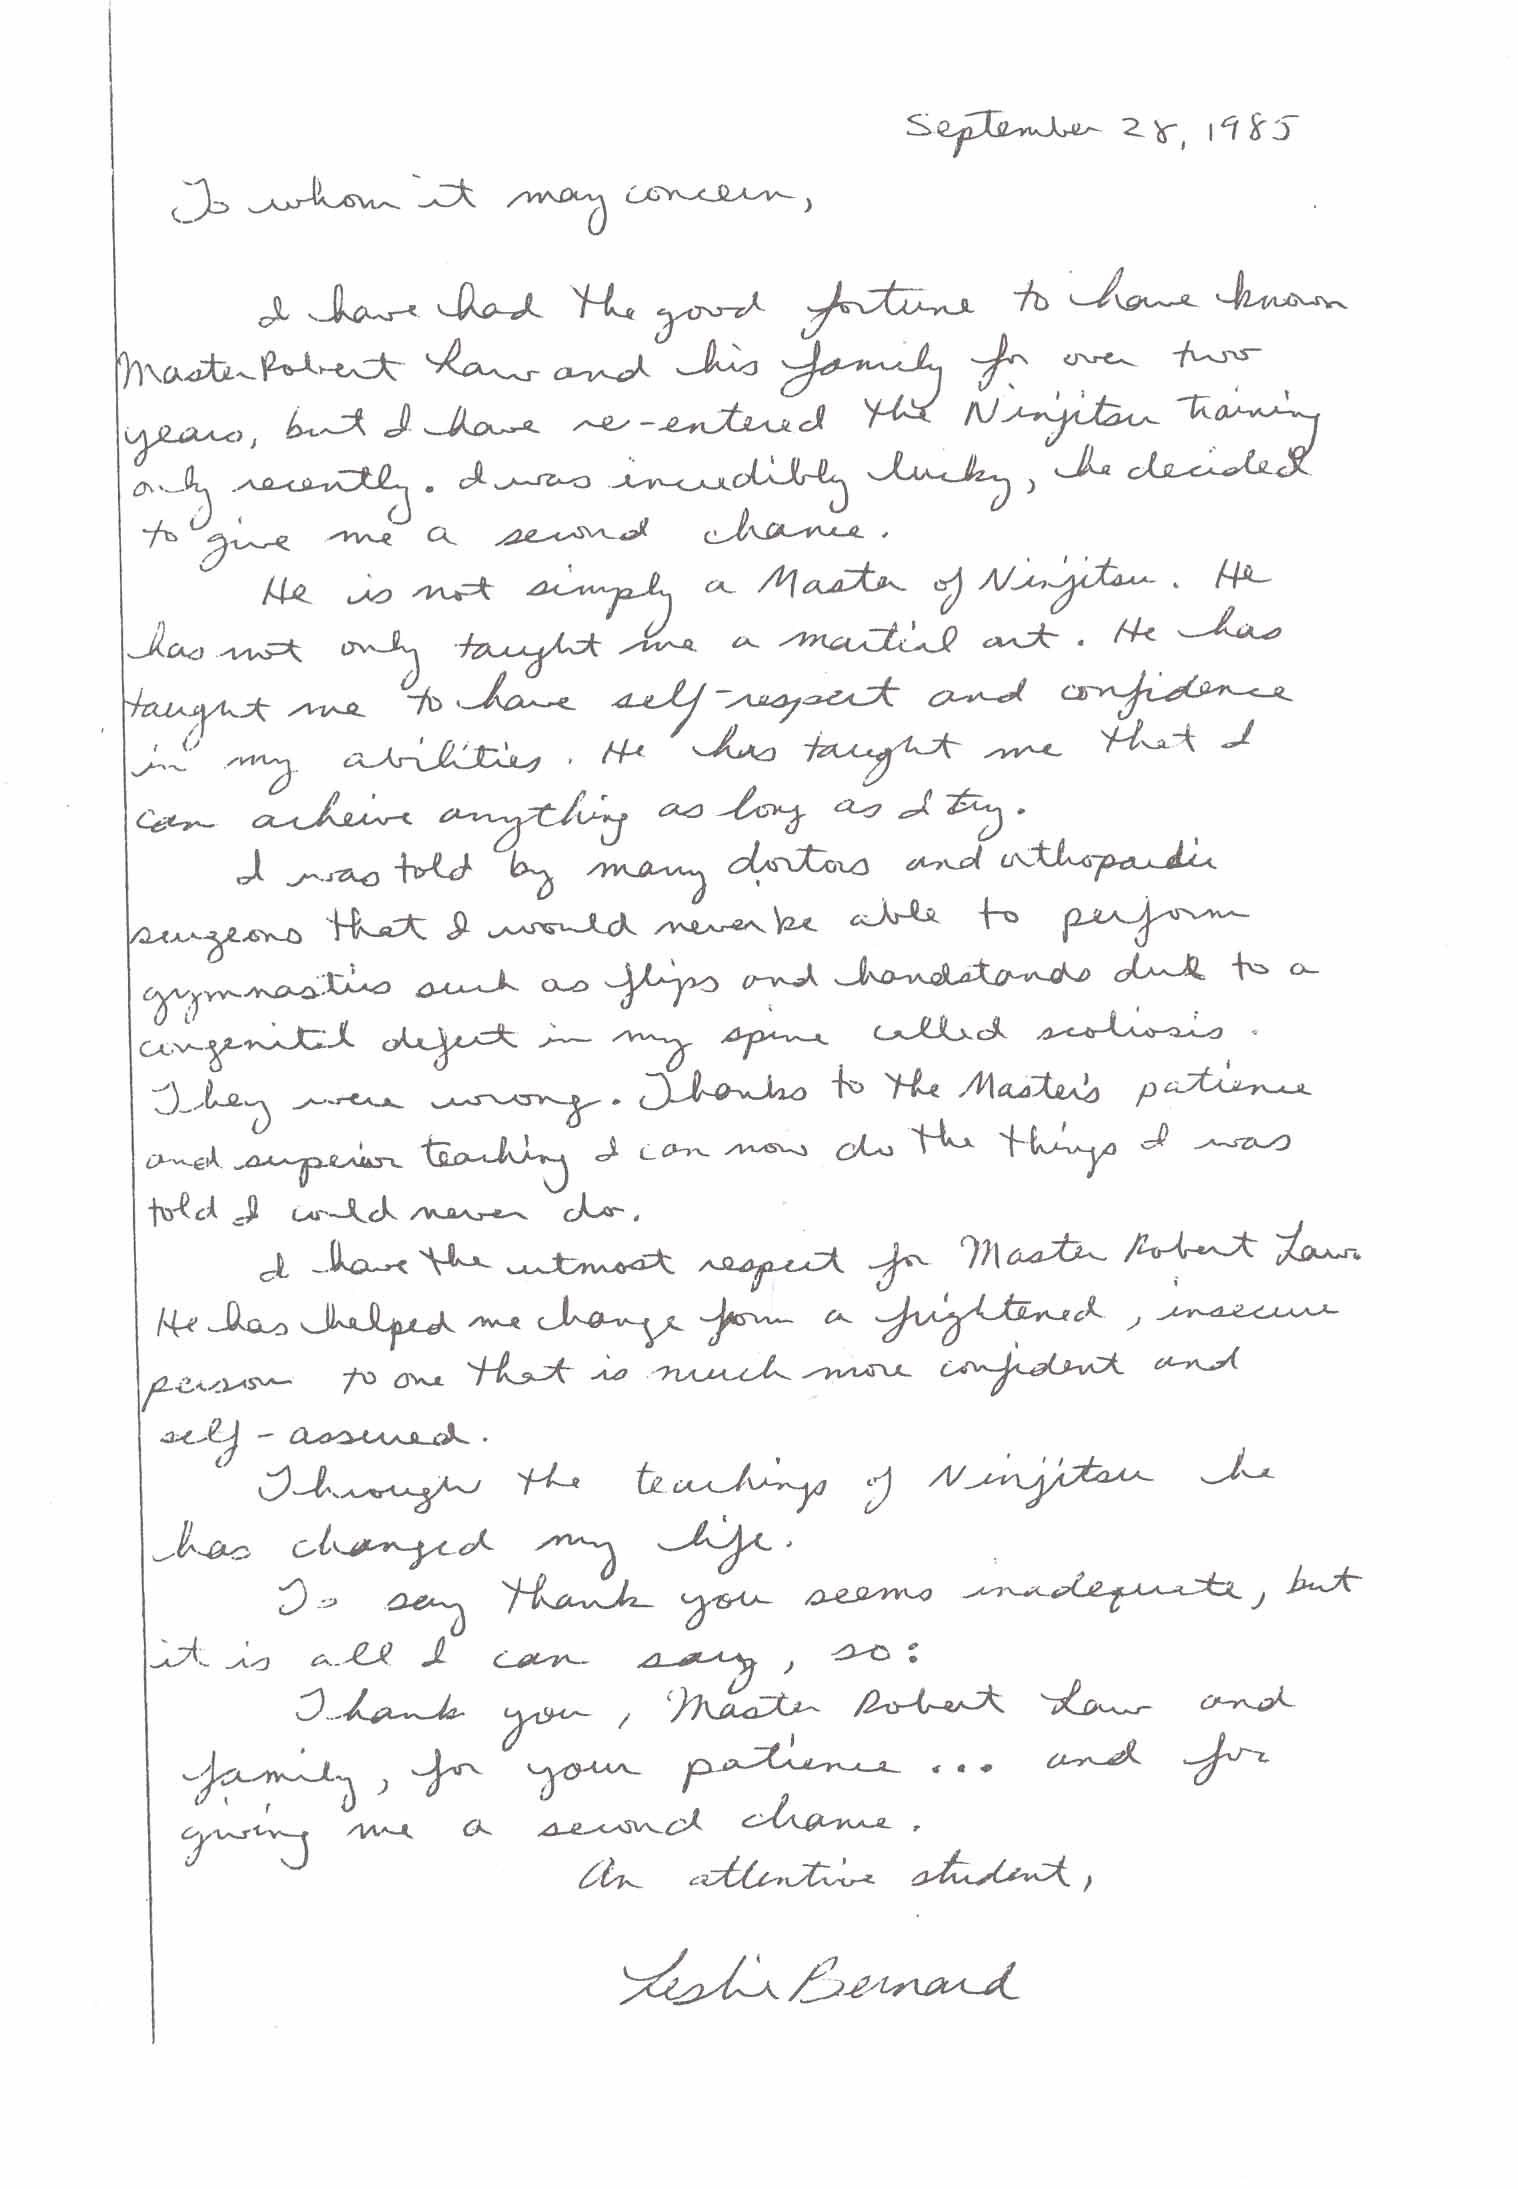 September 28, 1985
To whom it may concern,
I have had the good fortune to have known
Master Robert Law and his family for over two
years, but I have re-entered the Ninjitsu training
only recently. I was incredibly lucky, he decided
to give me a second chance.
He is not simply a Master of Ninjitsu. He
has not only taught me a martial art. He has
taught me to have self-respect and confidence
in my abilities. He has taught me that I
can acheive anything as long as I try.
I was told by many doctors and orthopaedic
surgeons that I would never be able to perform
gymnastics such as flips and handstands due to a
congenital defect in my spine called scoliosis.
They were wrong. Thanks to the Master's patience
and superior teaching I can now do the things I was
told I could never do.
I have the utmost respect for Master Robert Law.
He has helped me change from a frightened, insecure
person to one that is much more confident and
self-assured.
Through the teachings of Ninjitsu he
has changed my life.
To say thank you seems inadequate, but
it is all I can say, so:
Thank you, Master Robert Law and
family, for your patience... and for
giving me a second chance.
An attentive student,
Leslie Bernard